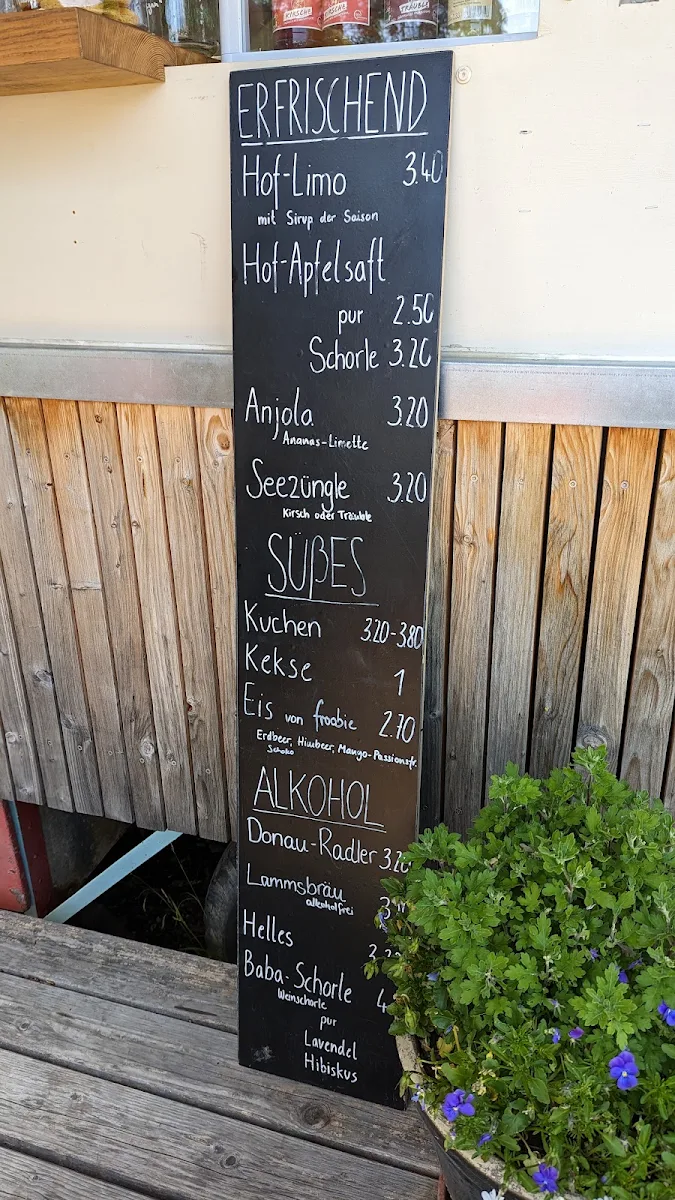 KIRSCHE
TRÄUBLE
ERFRISCHEND
Hof-Limo 3.40
mit Sirup der Saison
Hof-Apfelsaft
pur 2.50
Schorle 3.20
Anjola 3.20
Ananas-Limette
Seezüngle 3.20
Kirsch oder Träuble
SÜßES
Kuchen 3.20-3.80
Kekse 1
Eis von froobie 2.70
Erdbeer, Himbeer, Mango-Passionsfr.
Schoko
ALKOHOL
Donau-Radler 3.20
Lammsbräu
alkoholfrei
Helles
Baba-Schorle
Weinschorle
pur
Lavendel
Hibiskus